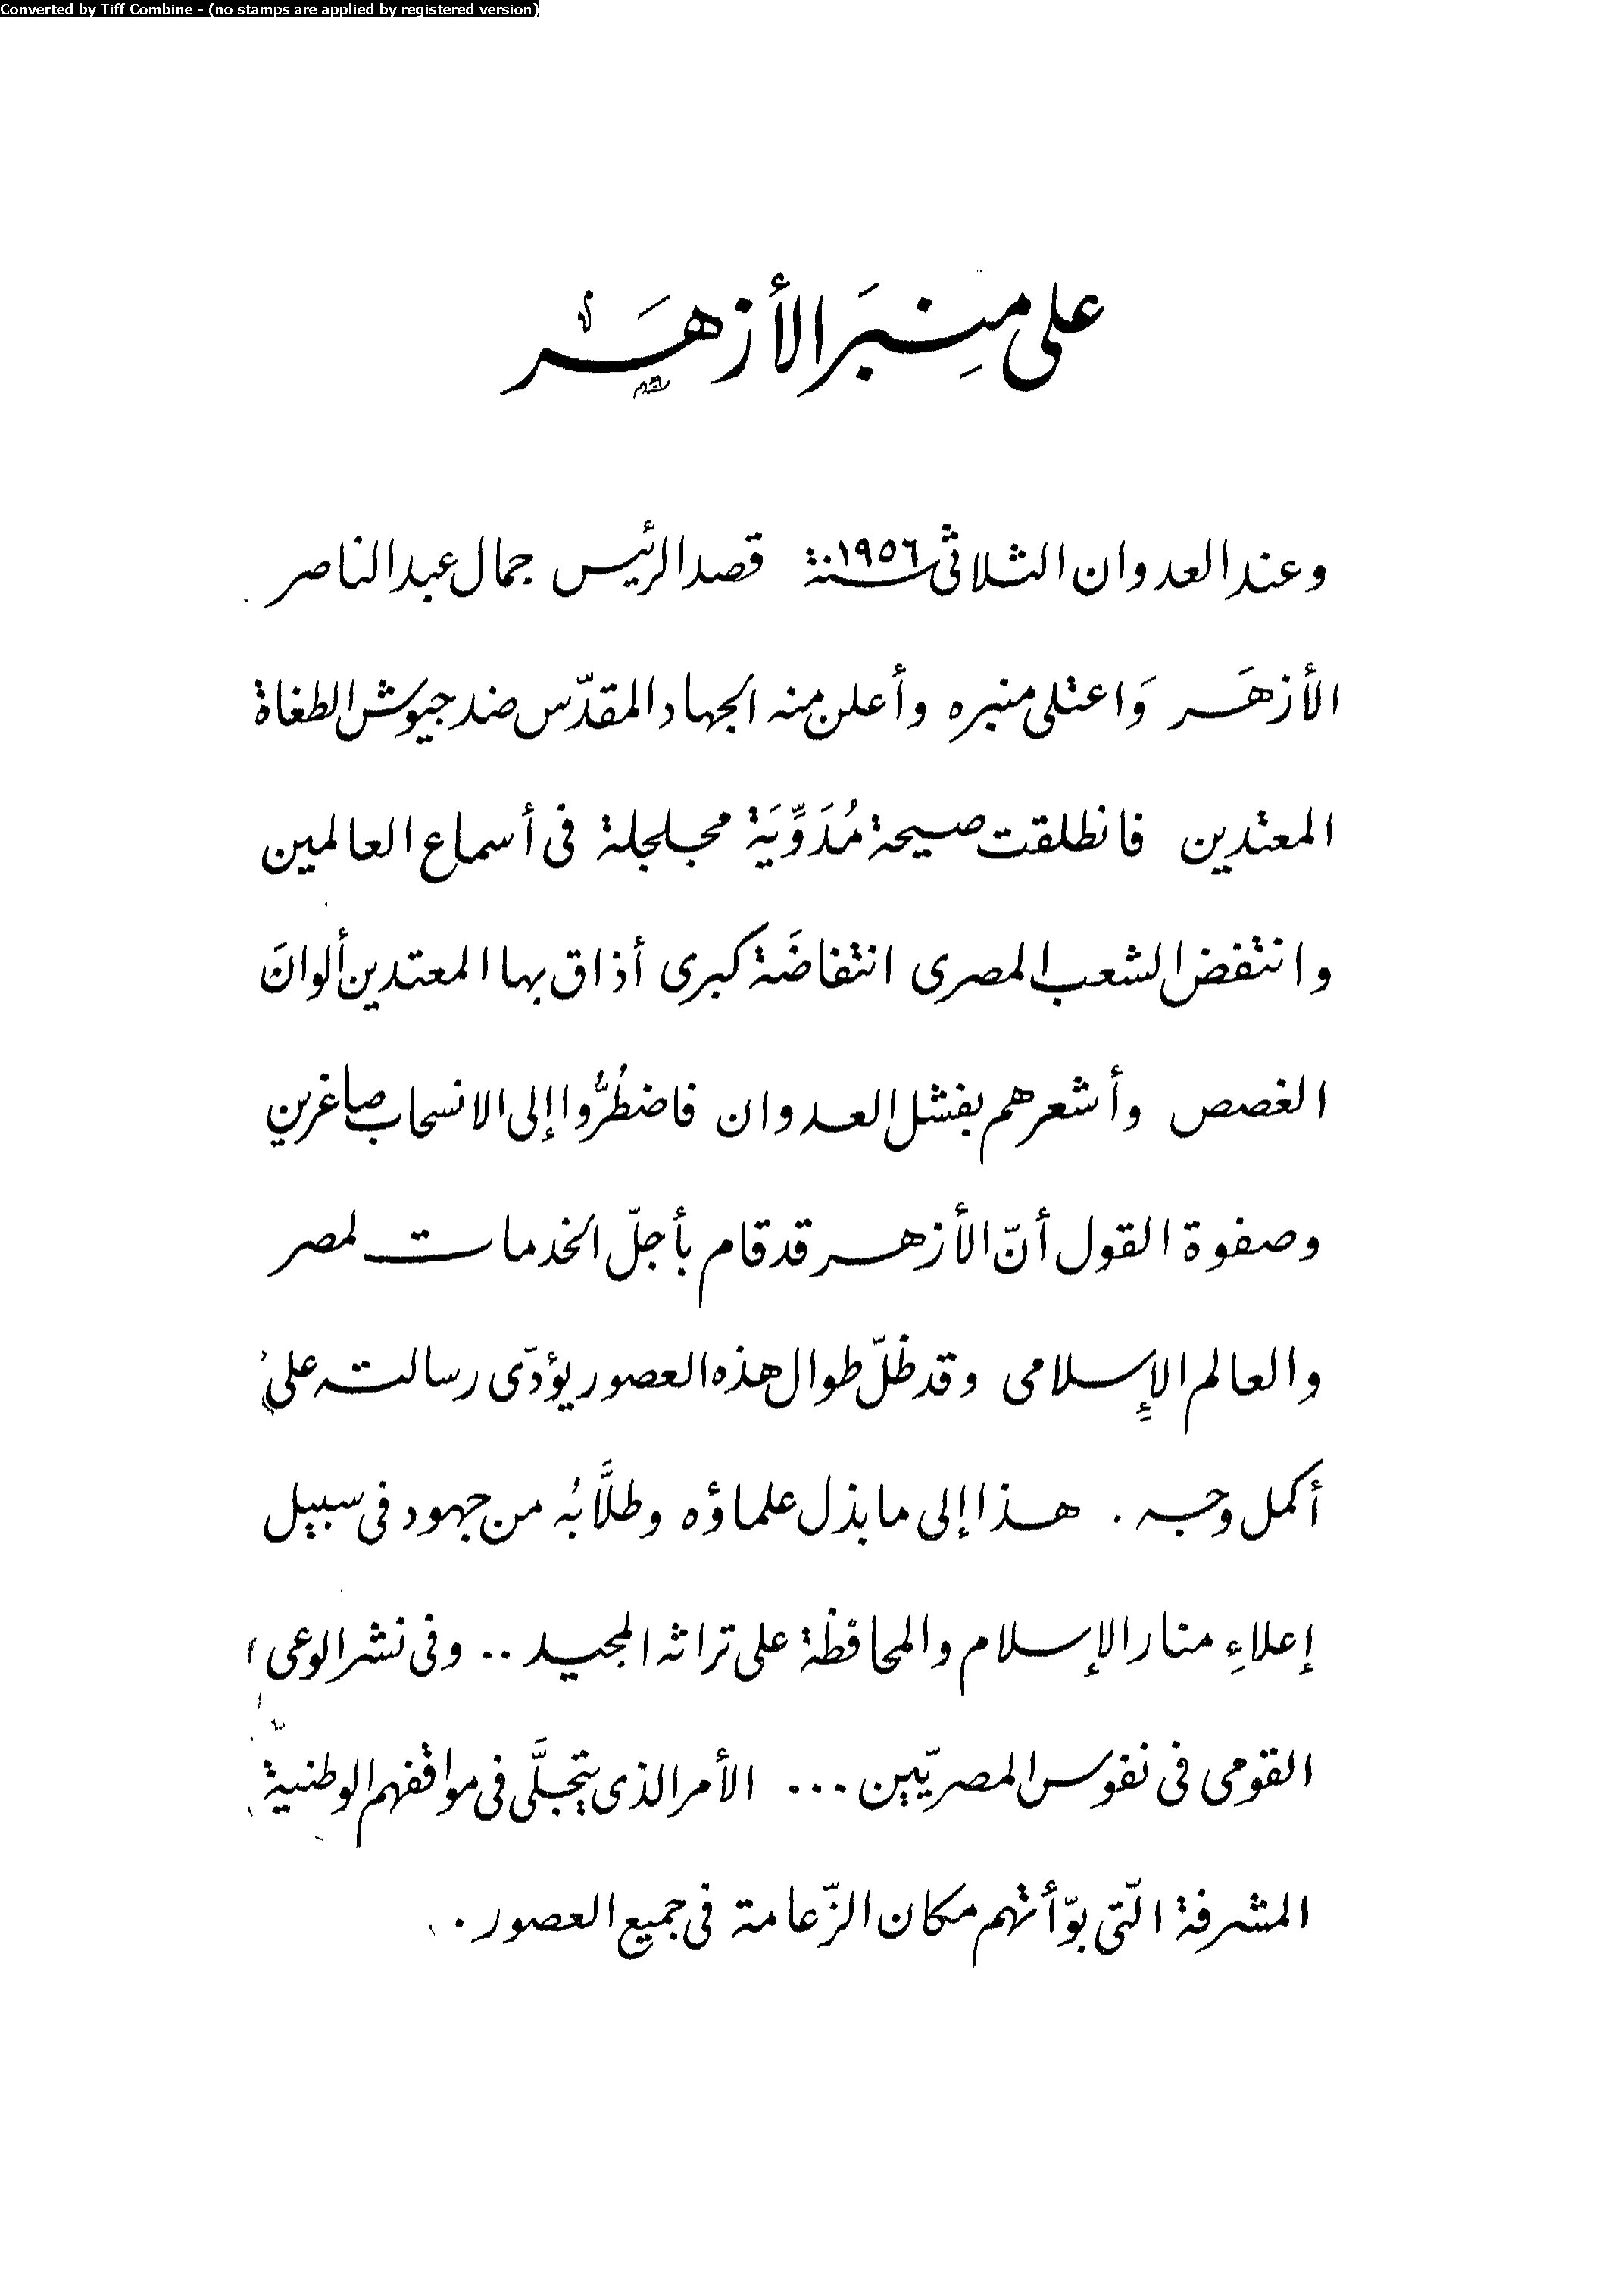 Converted by Tiff Combine - (no stamps are applied by registered version)
على مِنبَر الأزهَر
وعند العدوان الثلاثى سنة ١٩٥٦ قصد الرئيس جمال عبد الناصر
الأزهَر وَاعتلى منبره وأعلن منه الجهاد المقدّس ضد جيوش الطغاة
المعتدين فانطلقت صيحة مُدَوِّيَة مجلجلة فى أسماع العالمين
وانتفض الشعب المصرى انتفاضَة كبرى أذاق بها المعتدين ألوانَ
الغصص وأشعرهم بفشل العدوان فاضطُرُّوا إلى الانسحاب صاغرين
وصفوة القول أنّ الأزهر قد قام بأجلّ الخدمات لمصر
والعالم الإِسلامى وقد ظلّ طوال هذه العصور يؤدّى رسالته على
أكمل وجه . هذا إلى ما بذل علماؤه وطلَّابُه من جهود فى سبيل
إعلاءِ منار الإسلام والمحافظة على تراثه المجيد .. وفى نشر الوعى
القومى فى نفوس المصريّين ... الأمر الذى يتجلَّى فى مواقفهم الوطنيّة
المشرفة الّتى بوّأتهم مكان الزّعامة فى جميع العصور .